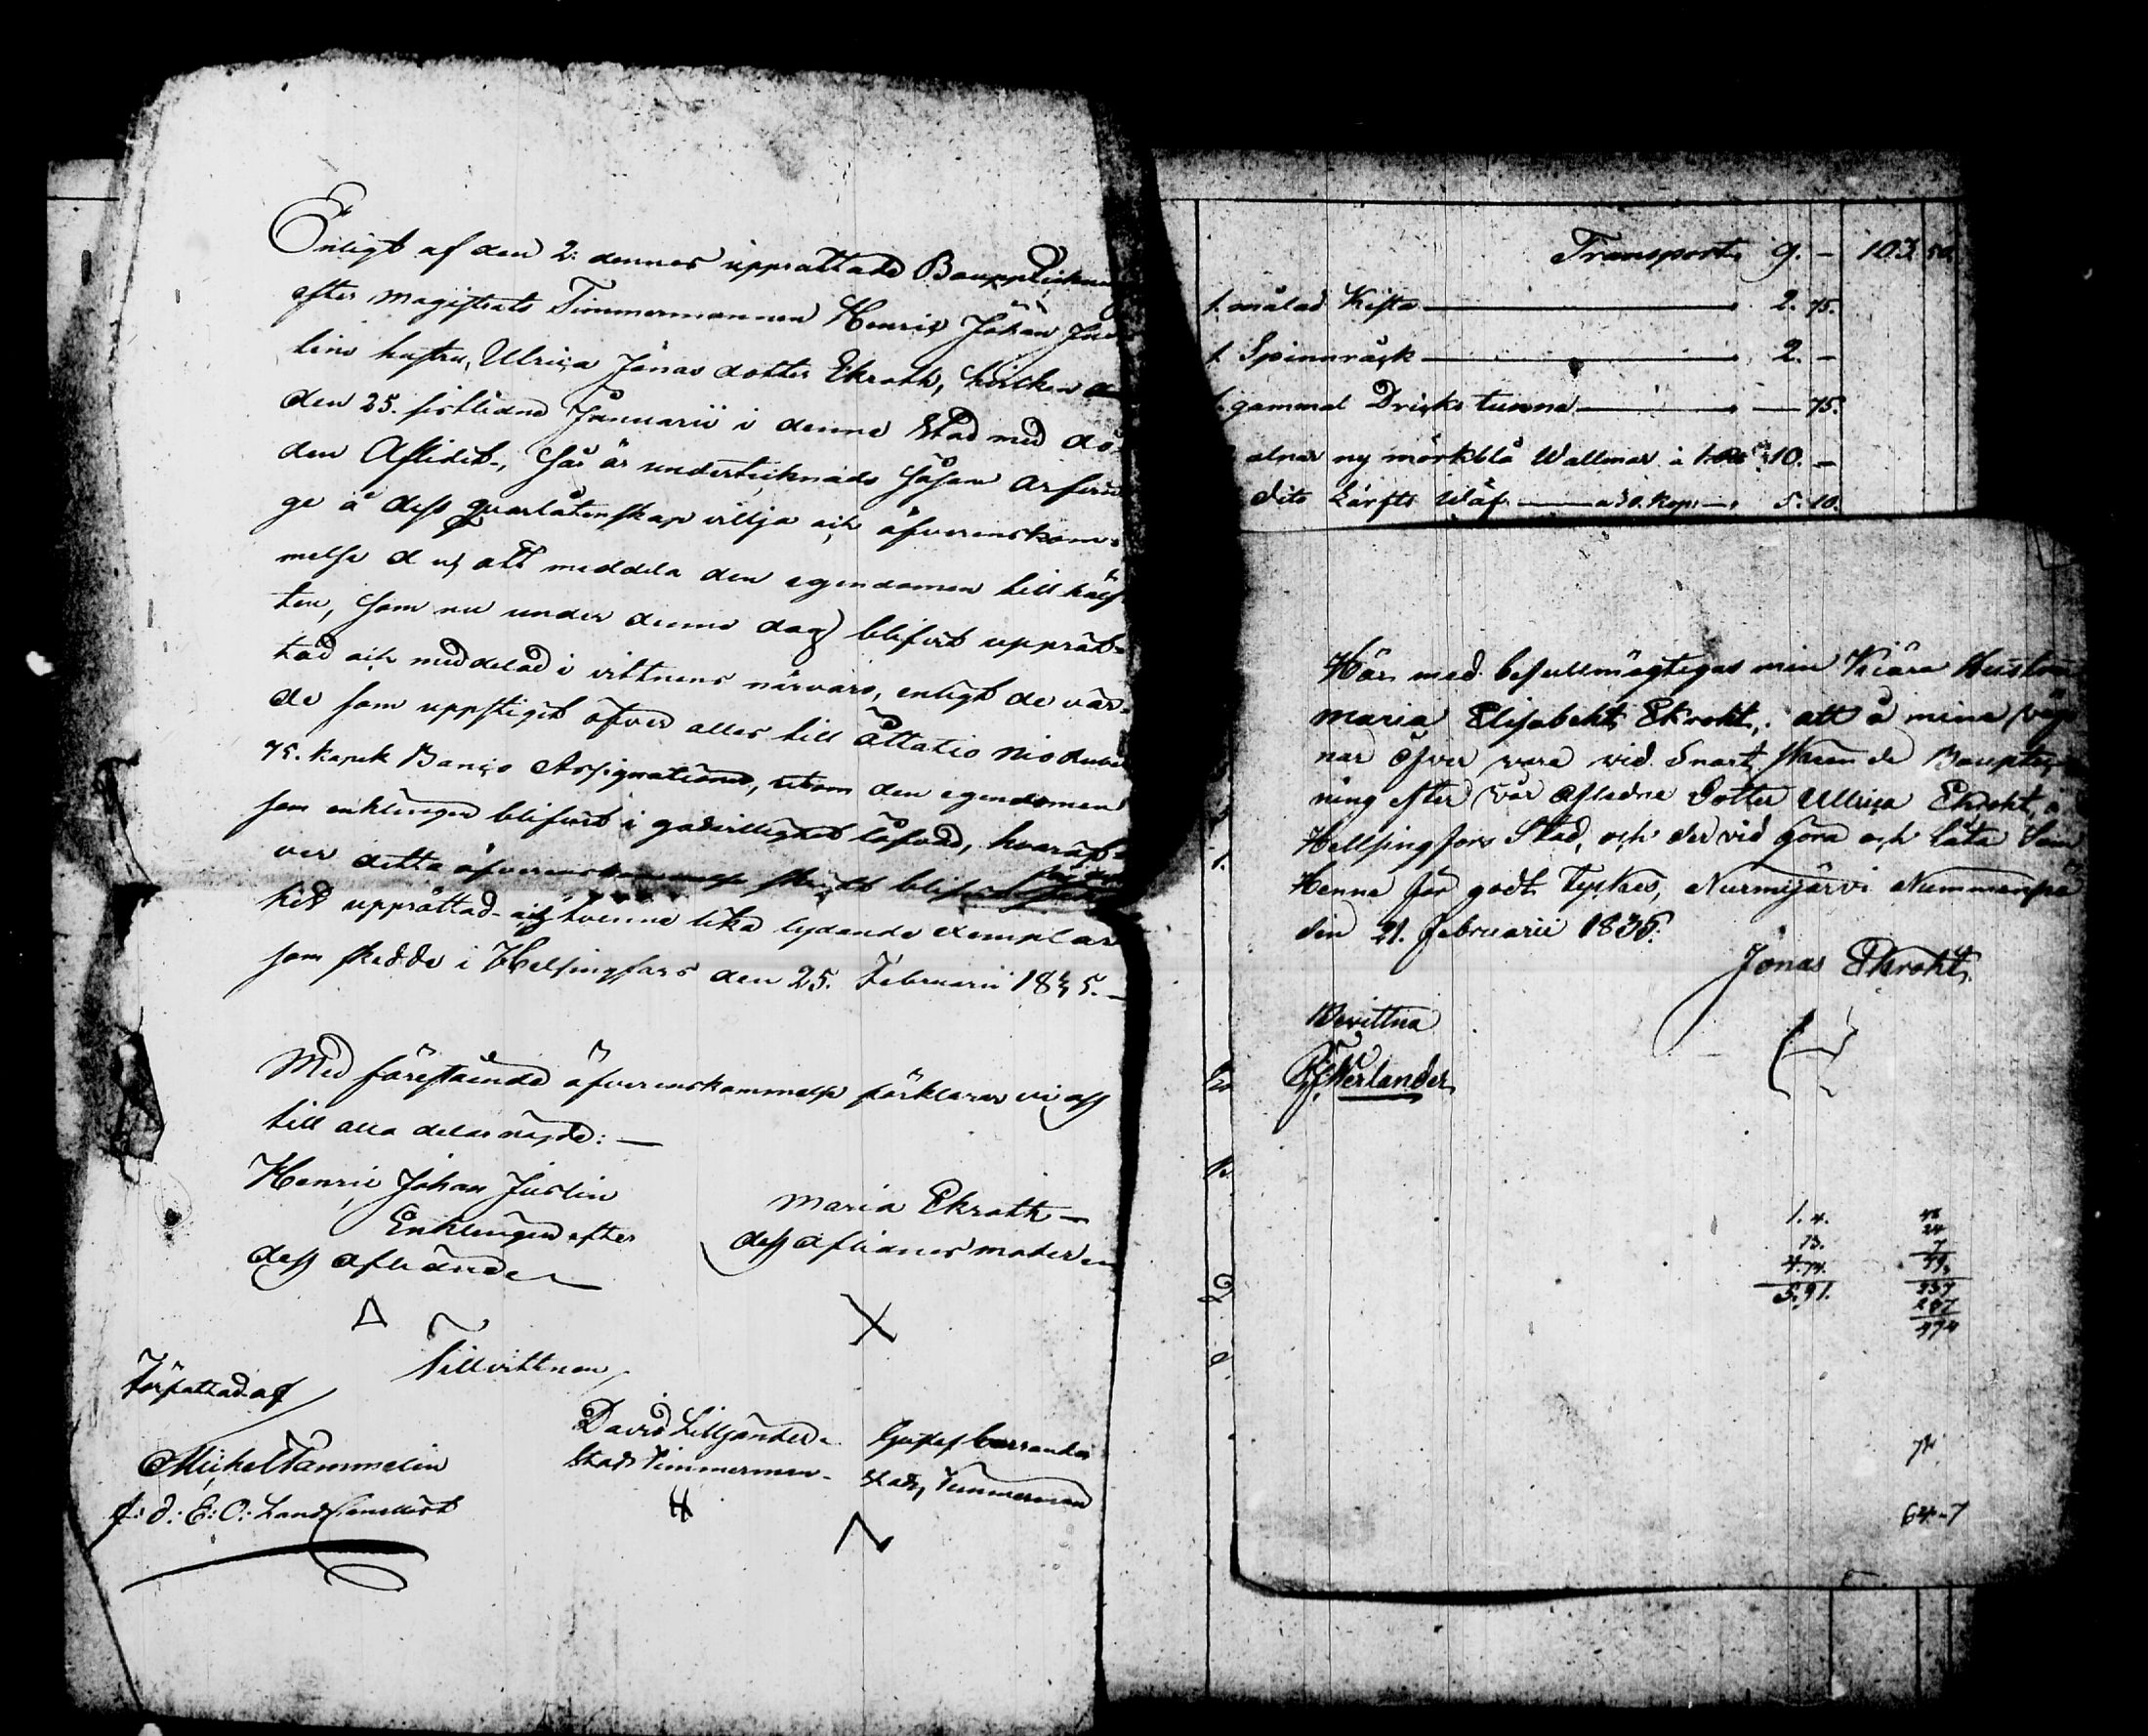 Enligt af den 2: dennes upprättade Bouppteckni
efter Magistrats Timmermannen Henric Johan Jus
lins hustru, Ulrica Jonas dotter Ekroth, hvilken
den 25. sistledne Januarii i denne Stad med dö-
den Aflidit, så är undertecknade såsom arfvin
ge å dess qvarlåtenskap villja och öfverenskom-
melse att meddela den egendomen till hälf
ten, som nu under denne dag blifvit upprät-
tad och meddelad i vittnens närvaro, enligt de vär-
de som uppstigit öfver alles till Åttatio nio Rube
75. kopek Banco Assignationer, utom den egendomen
som enklingen blifvit i godvillighet låfvad, hvaraf
ver detta öfverenskommelse blifvit
het upprättad tvenne lika lydande exemplar
som skedde i Helsingfors den 25. Februarii 1835.—
Med förestående öfverenskommelse förklarar vi oss
till alla delar nögde:—
Henric Johan Juslin
Enklingen efter
dess aflidne
Maria Ekroth—
dess aflidnes moder
Till vittnen
Författad af
Michel Tammelin
David Lilljander
Stads Timmerman
Gustaf
Stads Timmerman
Transport 9. — 103. 50
1. målad Kista — 2. 75.
1. Spinnråck — 2. —
1. gammal Dricks tunna — 75.
alnar ny mörkblå Wallmar à 10. —
dito Lärfts Wäf — à 30. Kop: — 5. 10.
Här med befullmägtigas min Kiära Hustru
Maria Elisabeht Ekroht, att å mina väg
nar öfver vara vid Snart skeende Bouptec
ning efter vår Afledne Dotter Ullrica Ekroht,
Hellsingfors Stad, och der vid göra och låta Som
Henne för godt Tyckes, Nurmijärvi Nummenpä
den 21. Februarii 1835.
Jonas Ekroht
Bevittna
1. 4.
13.
4. 74.
5. 91.
48
24
7
237
237
474
74
64-7